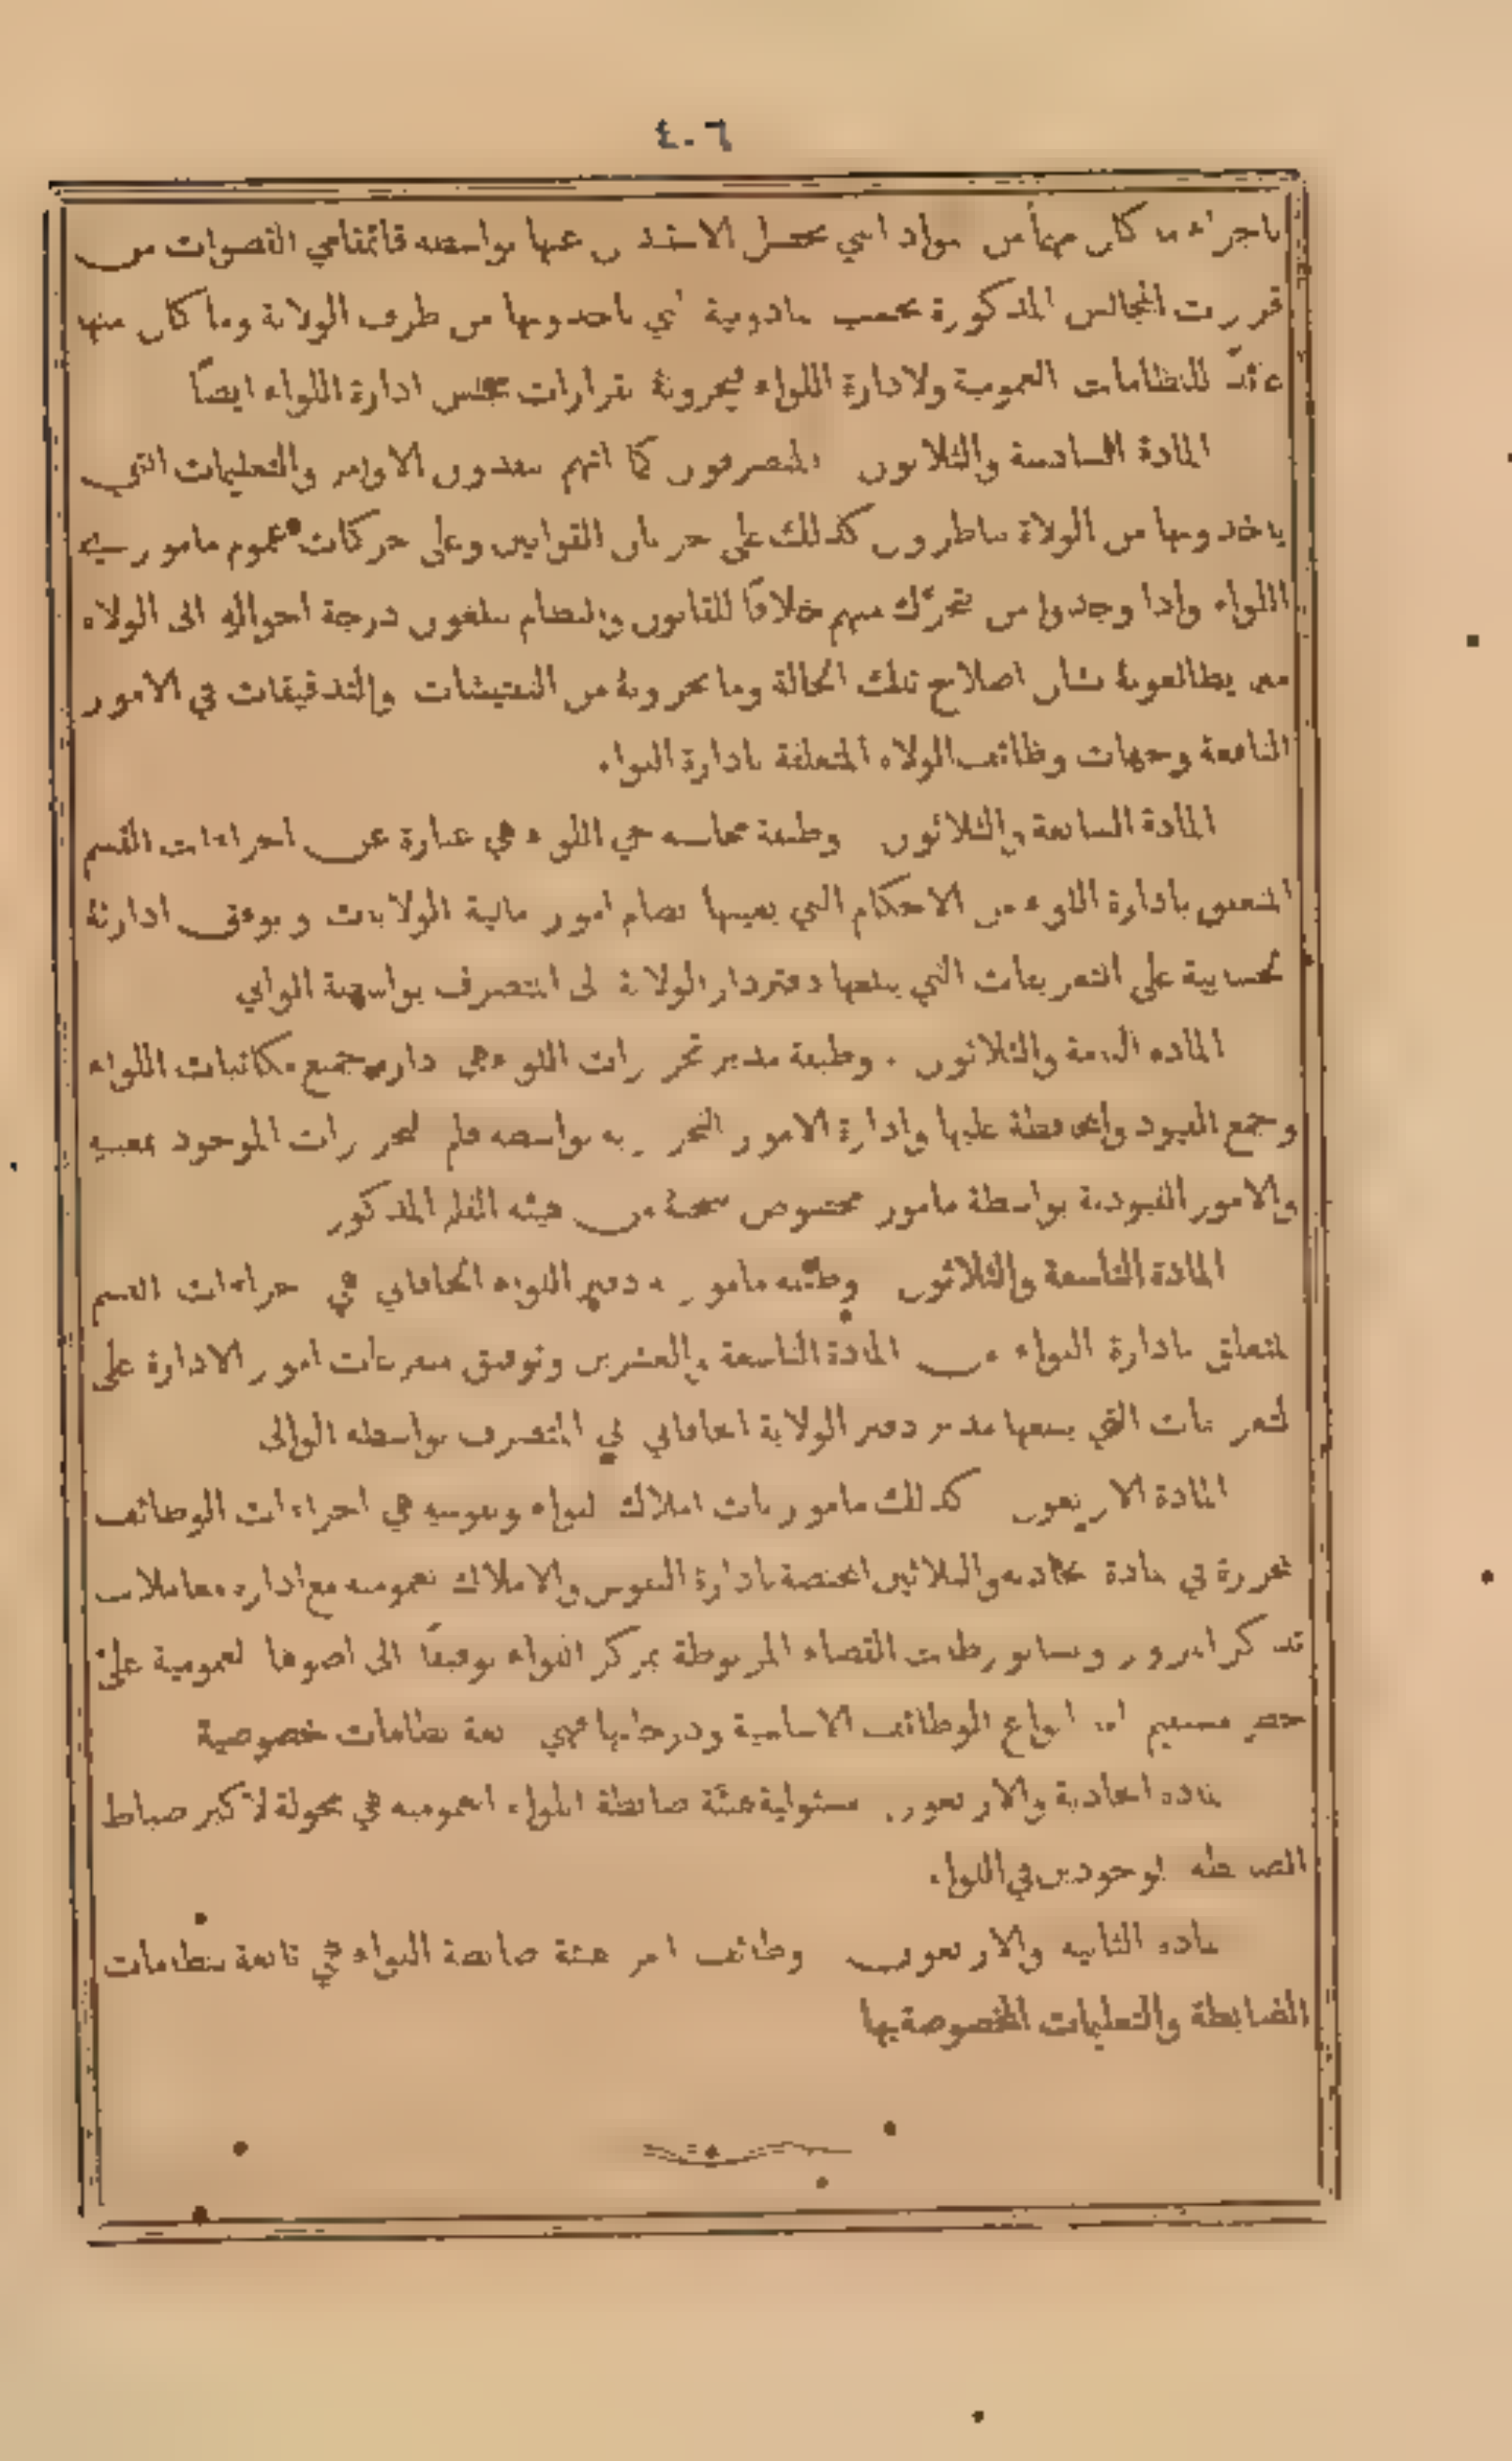 ٤٠٦
باجراء ما كان منها من مواد التي يحصل الاستئذان عنها بواسطة قائمقامي القضوات من
قررت المجالس المذكورة بحسب مأذونية التي ياخذونها من طرف الولاية وما كان منها
عائد للنظامات العمومية ولادارة اللواء فيجرونهُ بقرارات مجلس ادارة اللواء ايضاً
المادة السادسة والثلاثون المتصرفون كما انهم ينفذون الاوامر والتعليمات التي
ياخذونها من الولاة يناظرون كذلك على جريان القوانين وعلى حركات عموم مأموري
اللواء واذا وجدوا من تحرّك منهم خلافاً للقانون والنظام يبلغون درجة احواله الى الولاة
مع يطالعونهُ بشأن اصلاح تلك الحالة وما يجرونهُ من التفتيشات والتدقيقات في الامور
النافعة وجهات وظائف الولاة المتعلقة بادارة اللواء.
المادة السابعة والثلاثون وظيفة محاسبه جي اللواء هي عبارة عن اجراءات القسم
المتعلق بادارة اللواء من الاحكام التي يعينها نظام امور مالية الولايات ويوفق ادارتهُ
الحسابية على التعريفات التي يبلغها دفتردار الولاية الى المتصرف بواسطة الوالي
المادة الثامنة والثلاثون. وظيفة مدير تحريرات اللواء هي ادارة جميع مكاتبات اللواء
وجمع القيود والمحافظة عليها وادارة الامور التحريرية بواسطة قلم التحريرات الموجود بمعيته
والامور القيودية بواسطة مامور مخصوص ينتخبهُ من هيئة القلم المذكور
المادة التاسعة والثلاثون وظيفة مامورية دفتر اللواء الخاقاني هي اجراءات القسم
المتعلق بادارة اللواء من المادة التاسعة والعشرين وتوفيق متفرعات امور الادارة على
التعريفات التي يبلغها مدير دفتر الولاية الخاقاني الى المتصرف بواسطة الوالي
المادة الاربعون كذلك ماموريات املاك اللواء ونفوسه هي اجراءات الوظائف
المحررة في المادة الحادية والثلاثين المختصة بادارة النفوس والاملاك العمومية مع ادارة معاملات
تذاكر المرور وبسابورطات القضاء المربوطة بمركز اللواء توفيقاً الى اصولها العمومية على
مستقيم اما انواع الوظائف الاساسية ودرجاتها فهي تابعة نظامات خصوصية
المادة الحادية والاربعون. مسئولية هيئة ضابطة اللواء العمومية هي محولة لاكبر ضباط
الضابطة الموجودين في اللواء.
المادة الثانية والاربعون وظائف امر هيئة ضابطة اللواء هي تابعة لنظامات
الضابطة والتعليمات المخصوصة بها